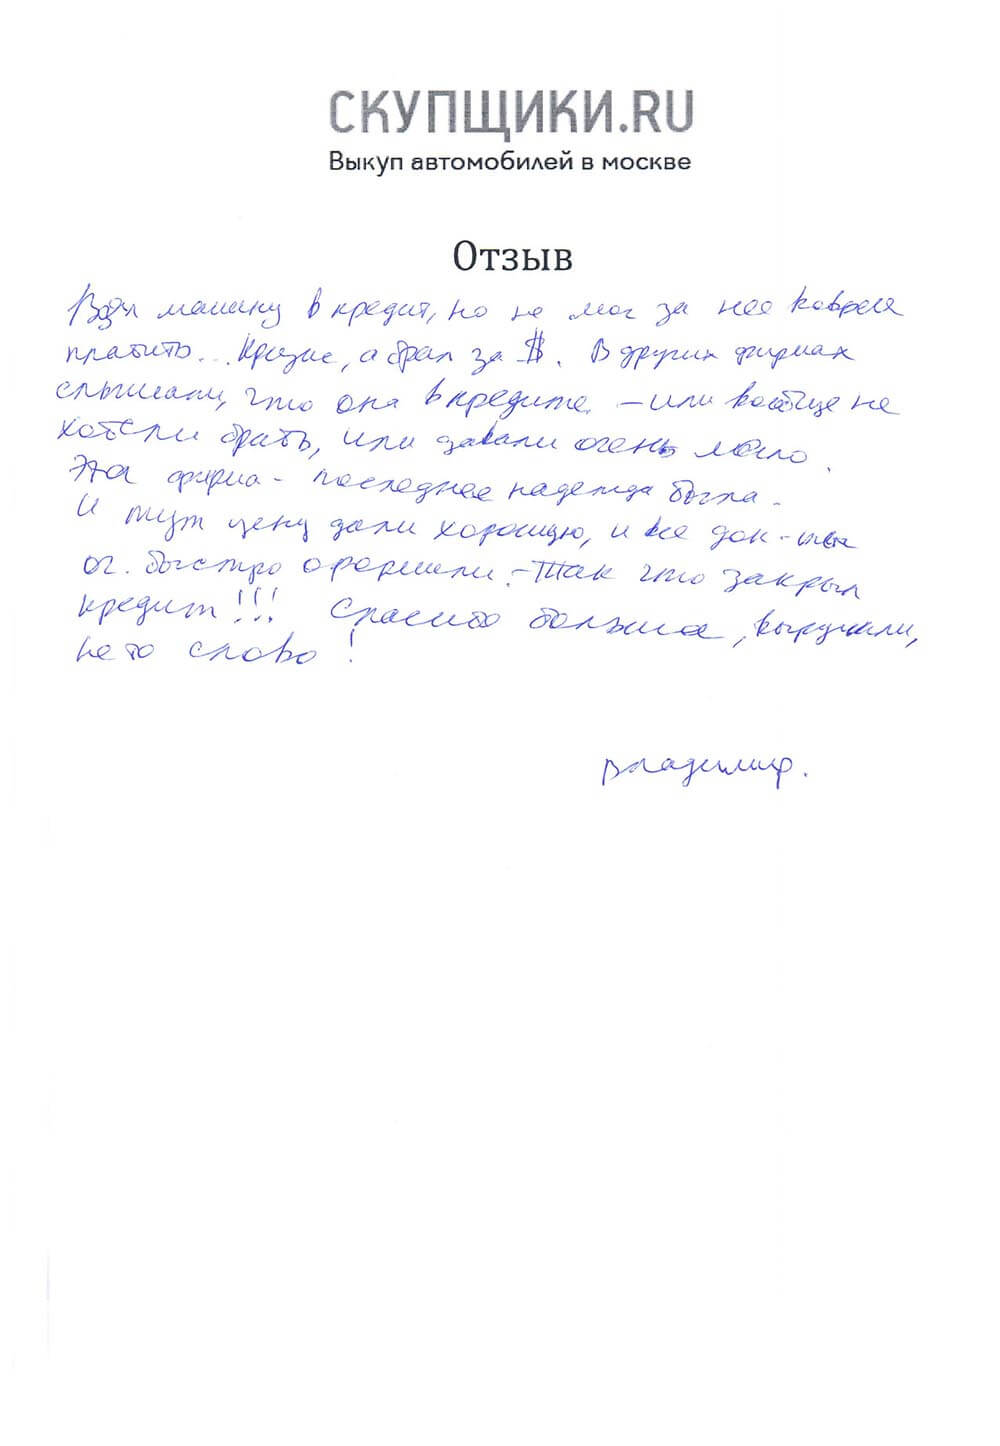 СКУПЩИКИ.RU
Выкуп автомобилей в москве
Отзыв
Взял машину в кредит, но не мог за нее вовремя
платить... Кризис, а брал за $. В других фирмах
слышали, что она в кредите – или вообще не
хотели брать, или давали очень мало.
Эта фирма - последнее надежда была.
И тут цену дали хорошую, и все док-ты
оч. быстро оформили. - Так что закрыл
кредит!!! Спасибо большое, выручили,
не то слово!
Владимир.